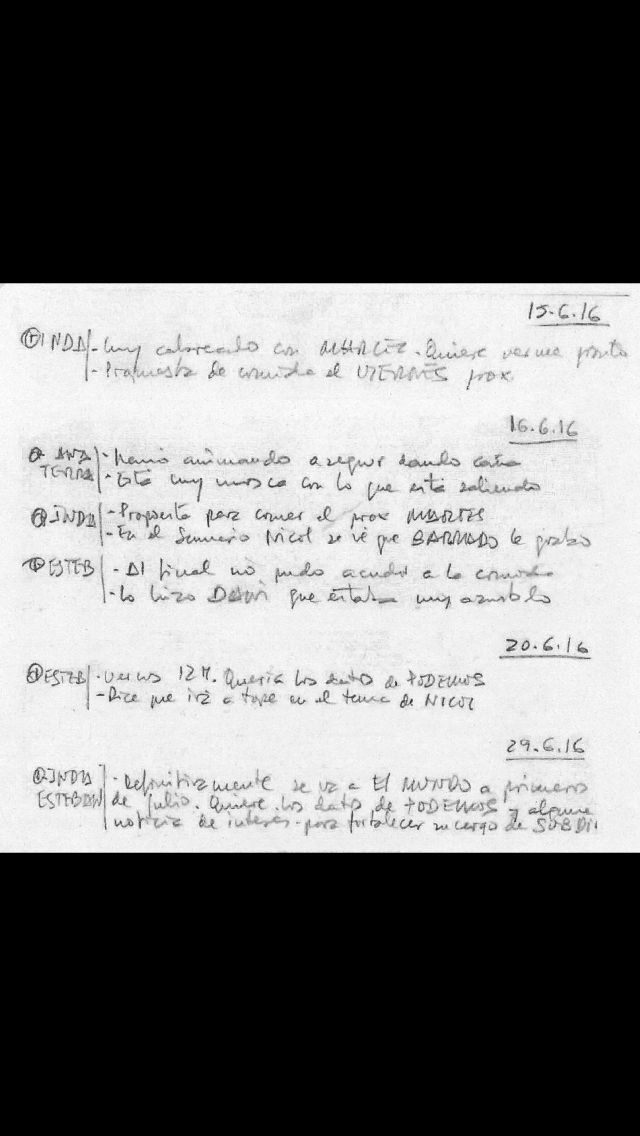 15.6.16
INDA - Muy cabreado con. Quiere verme pronto
- Propuesta de comida el VIERNES prox
16.6.16
ANA - animando a seguir dando caña
TERRA - Está muy mosca con lo que está saliendo
INDA - Propuesta para comer el prox MARTES
- En el Sumario Nicol se vé que BARRADO le grabó
ESTEB - Al final no pudo acudir a la comida
- Lo hizo que estaba muy
20.6.16
ESTEB - Vernos 12 M. Quería los datos de PODEMOS
- Dice que irá a tope en el tema de NICOL
29.6.16
INDA - Definitivamente se va a El MUNDO a primeros
ESTEBAN de julio. Quiere los datos de PODEMOS y alguna
noticia de interés para fortalecer su cargo de SUBDIR